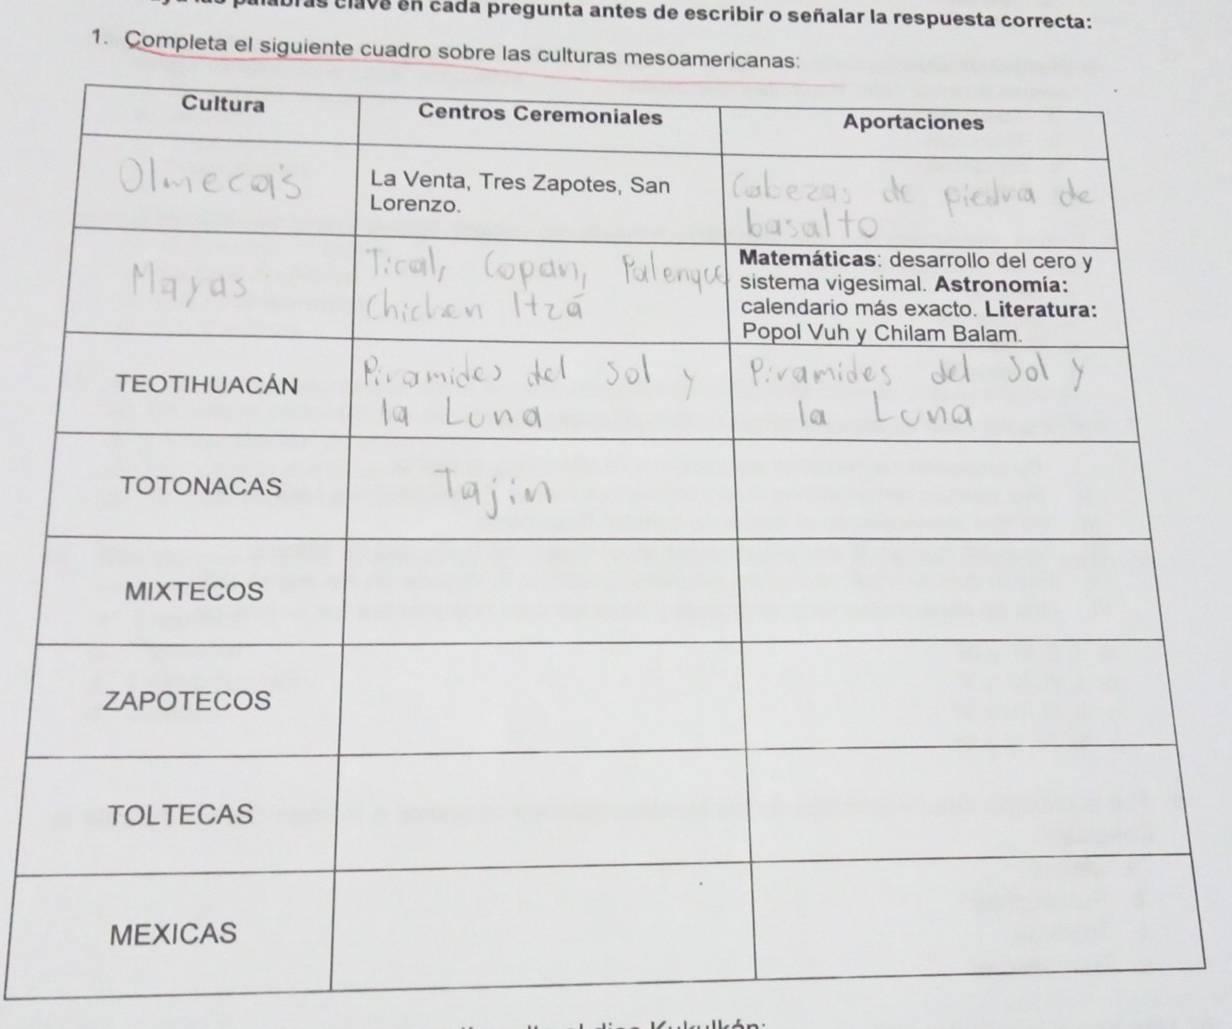 clave en cada pregunta antes de escribir o señalar la respuesta correcta:
1. Completa el siguiente cuadro sobre las culturas mesoamericanas:
Cultura
Centros Ceremoniales
Aportaciones
Olmecas
La Venta, Tres Zapotes, San
Lorenzo.
Cabezas de piedra de
basalto
Mayas
Tical, Copan, Palenque
Chichen Itzá
Matemáticas: desarrollo del cero y
sistema vigesimal. Astronomía:
calendario más exacto. Literatura:
Popol Vuh y Chilam Balam.
TEOTIHUACÁN
Piramides del Sol y
la Luna
Piramides del Sol y
la Luna
TOTONACAS
Tajin
MIXTECOS
ZAPOTECOS
TOLTECAS
MEXICAS